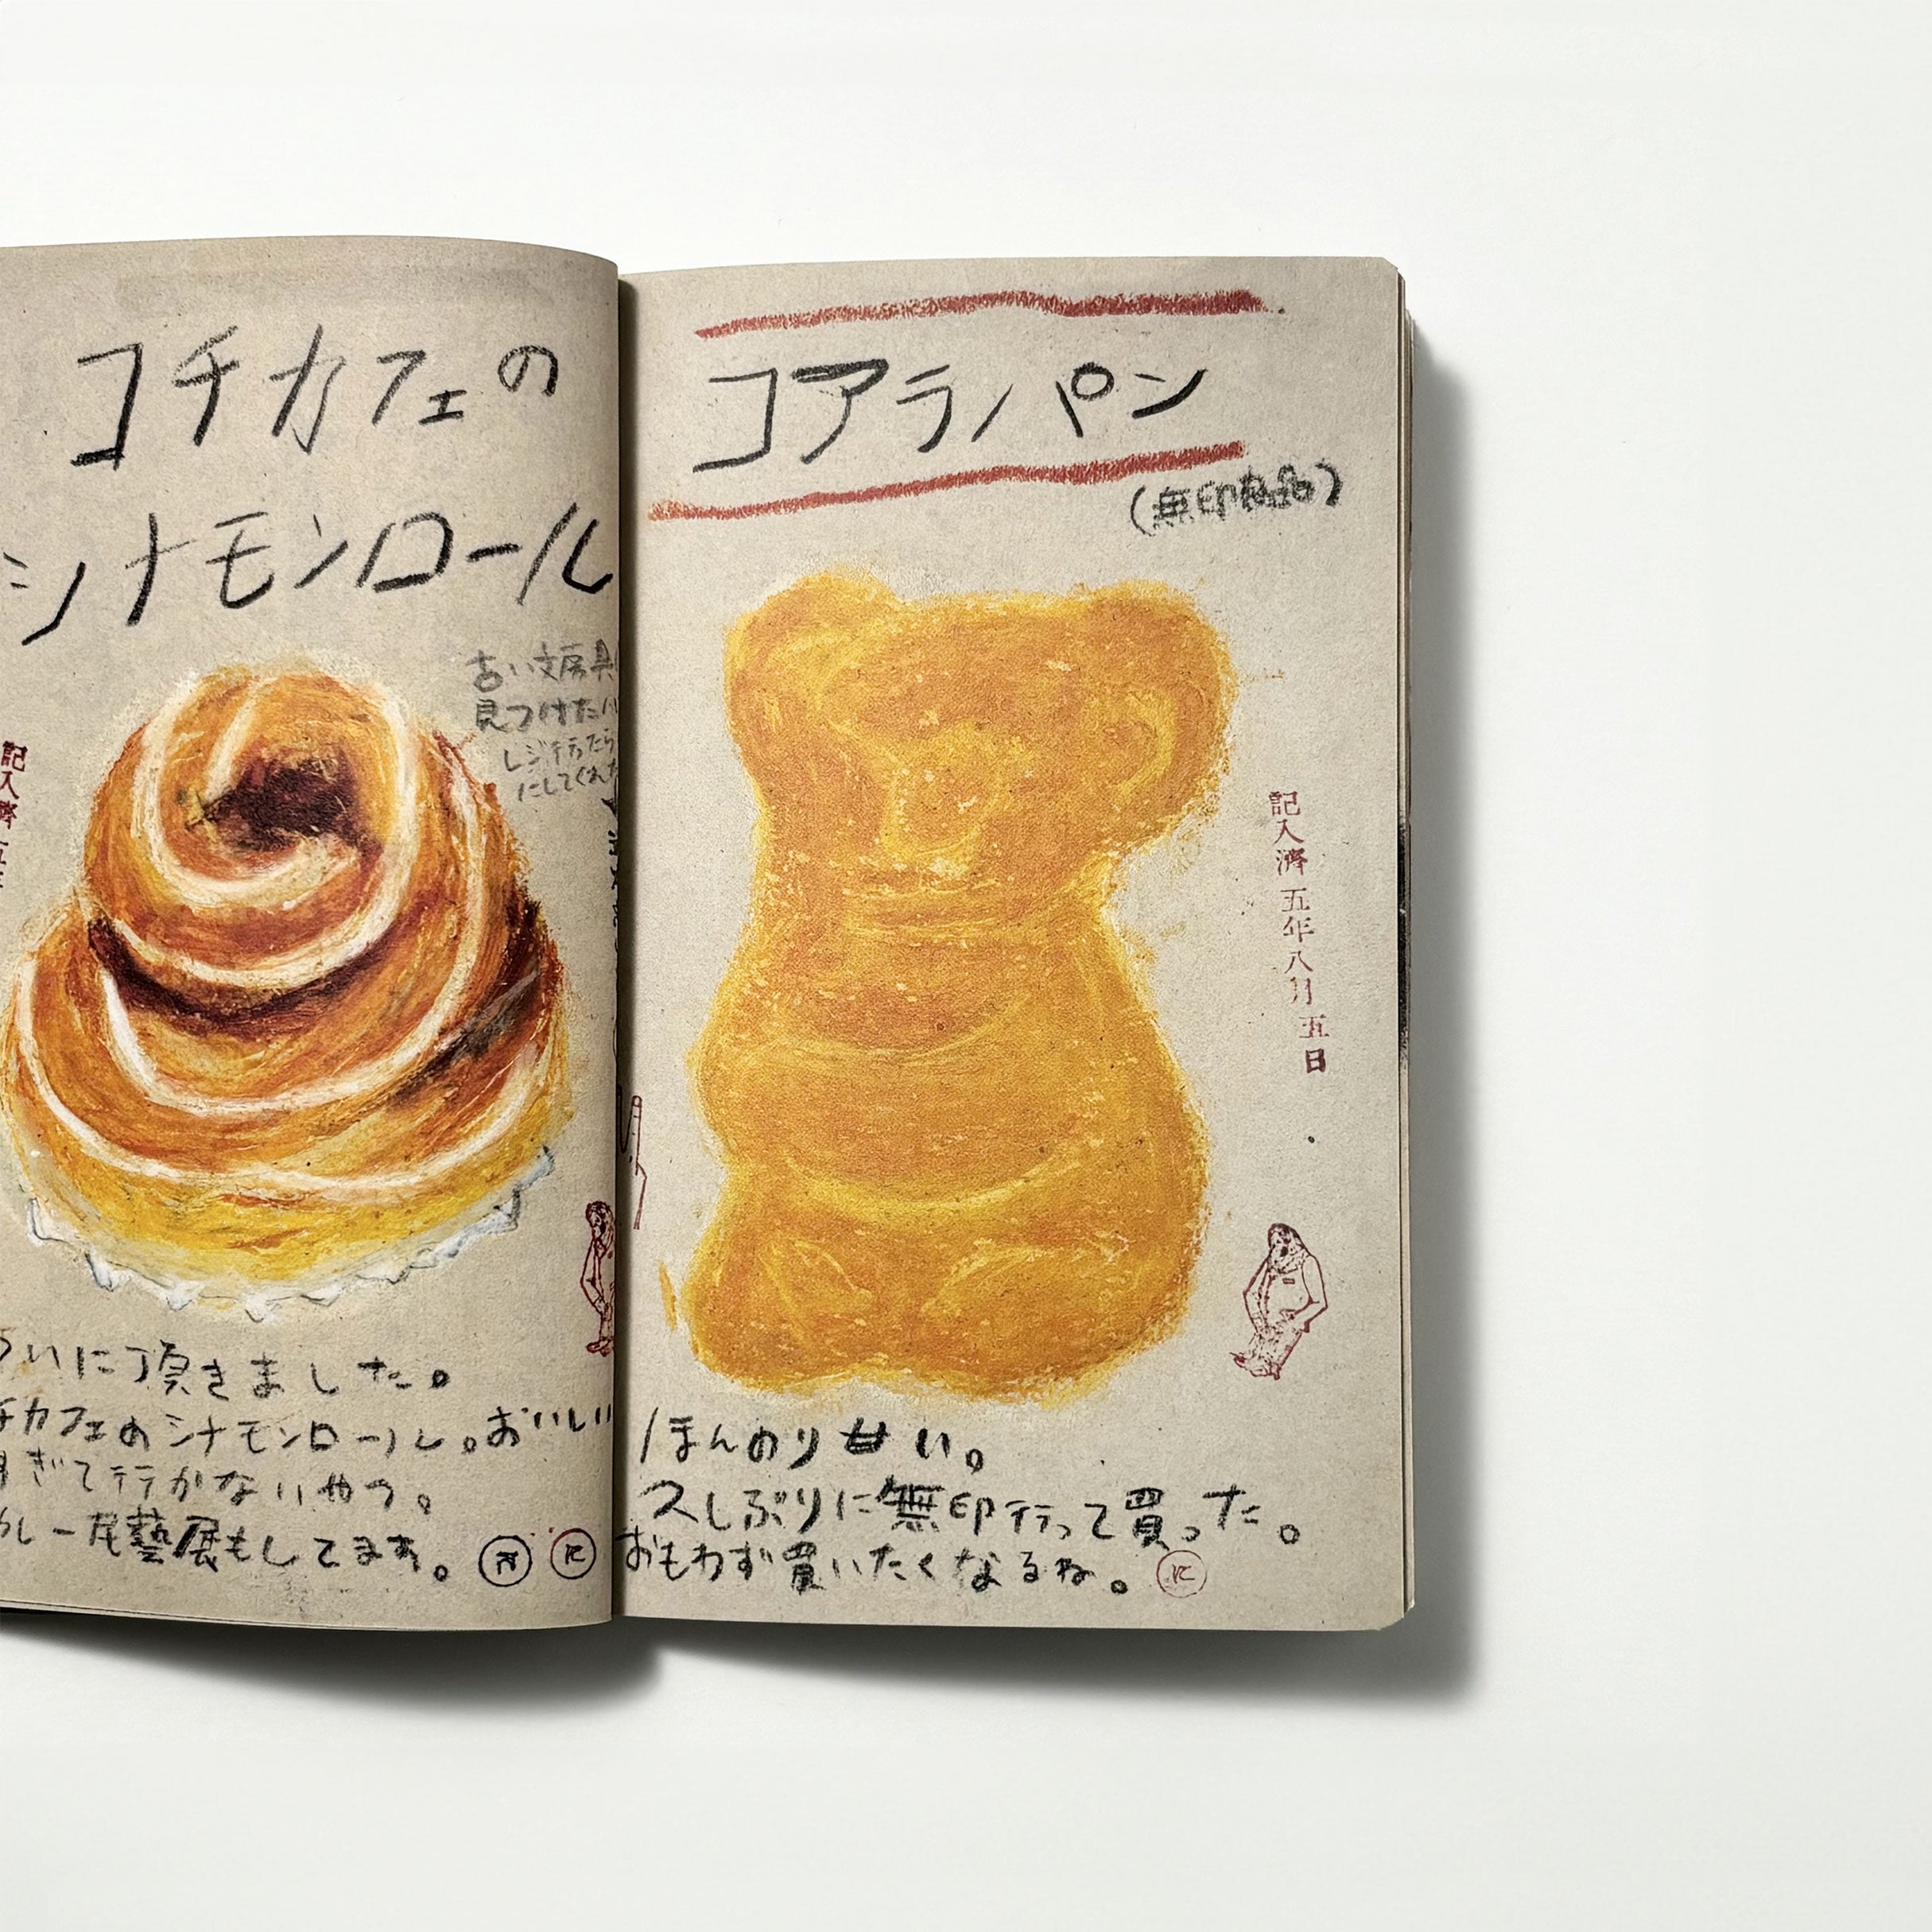 コチカフェの
シナモンロール
古い文房具
見つけたい
レジ行ったら
にしてくれた
記入済
ついに頂きました。
チカフェのシナモンロール。おいしい
すぎて行かないやつ。
カレー尾藝展もしてます。
コアラパン
(無印良品)
記入濟 五年八月 五日
ほんのり甘い。
久しぶりに無印行って買った。
おもわず買いたくなるね。